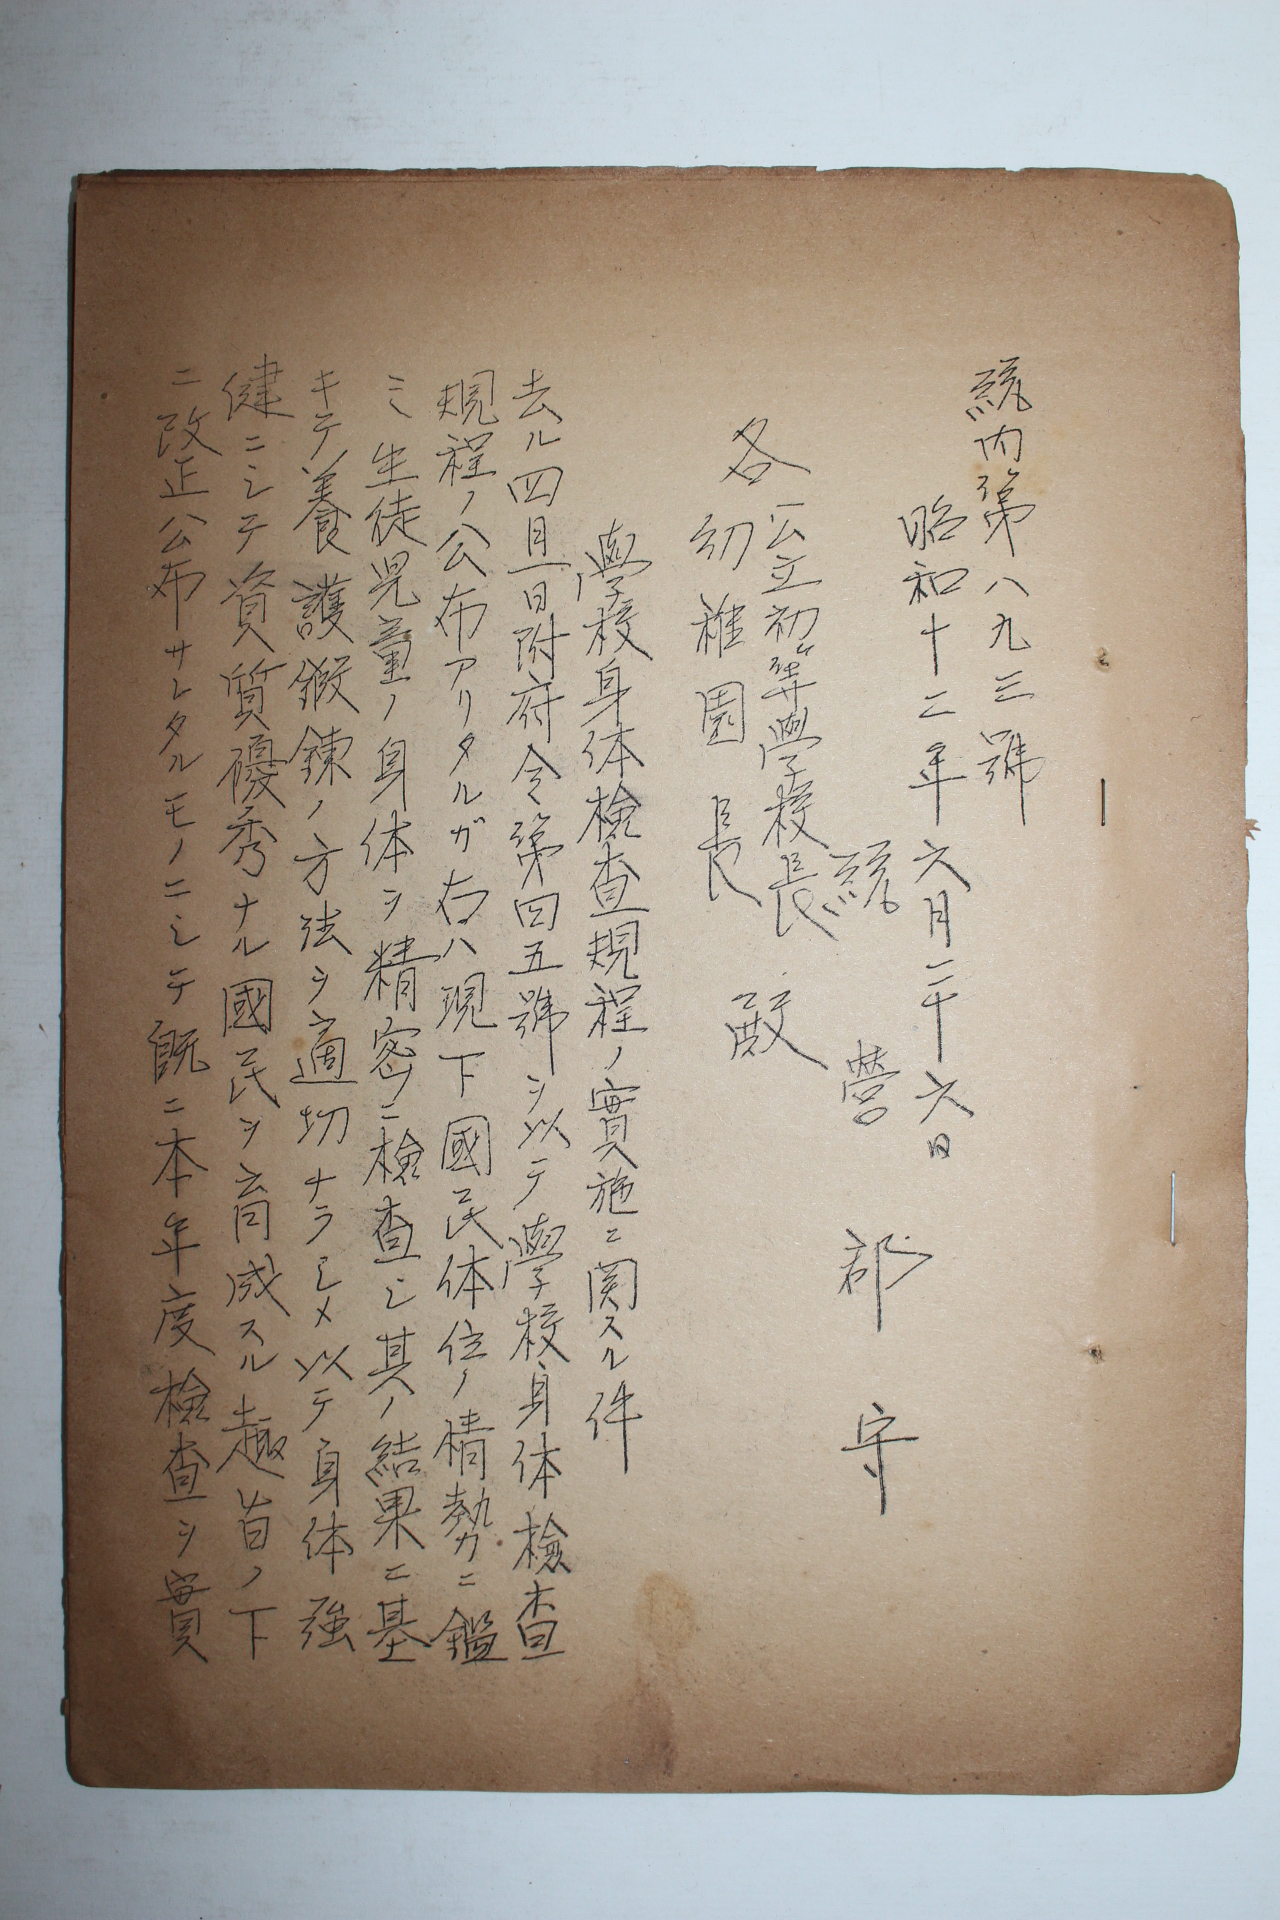 統内第八九三號
昭和十二年六月二十六日
統營郡守
各公立初等學校長
幼稚園長 殿
學校身体檢查規程ノ實施ニ関スル件
去ル四月一日附府令第四五號ヲ以テ學校身体檢查
規程ノ公布アリタルガ右ハ現下國民体位ノ情勢ニ鑑
ミ生徒児童ノ身体ヲ精密ニ檢查シ其ノ結果ニ基
キテ養護鍛錬ノ方法ヲ適切ナラシメ以テ身体強
健ニシテ資質優秀ナル國民ヲ育成スル趣旨ノ下
ニ改正公布サレタルモノニシテ既ニ本年度檢查ヲ實